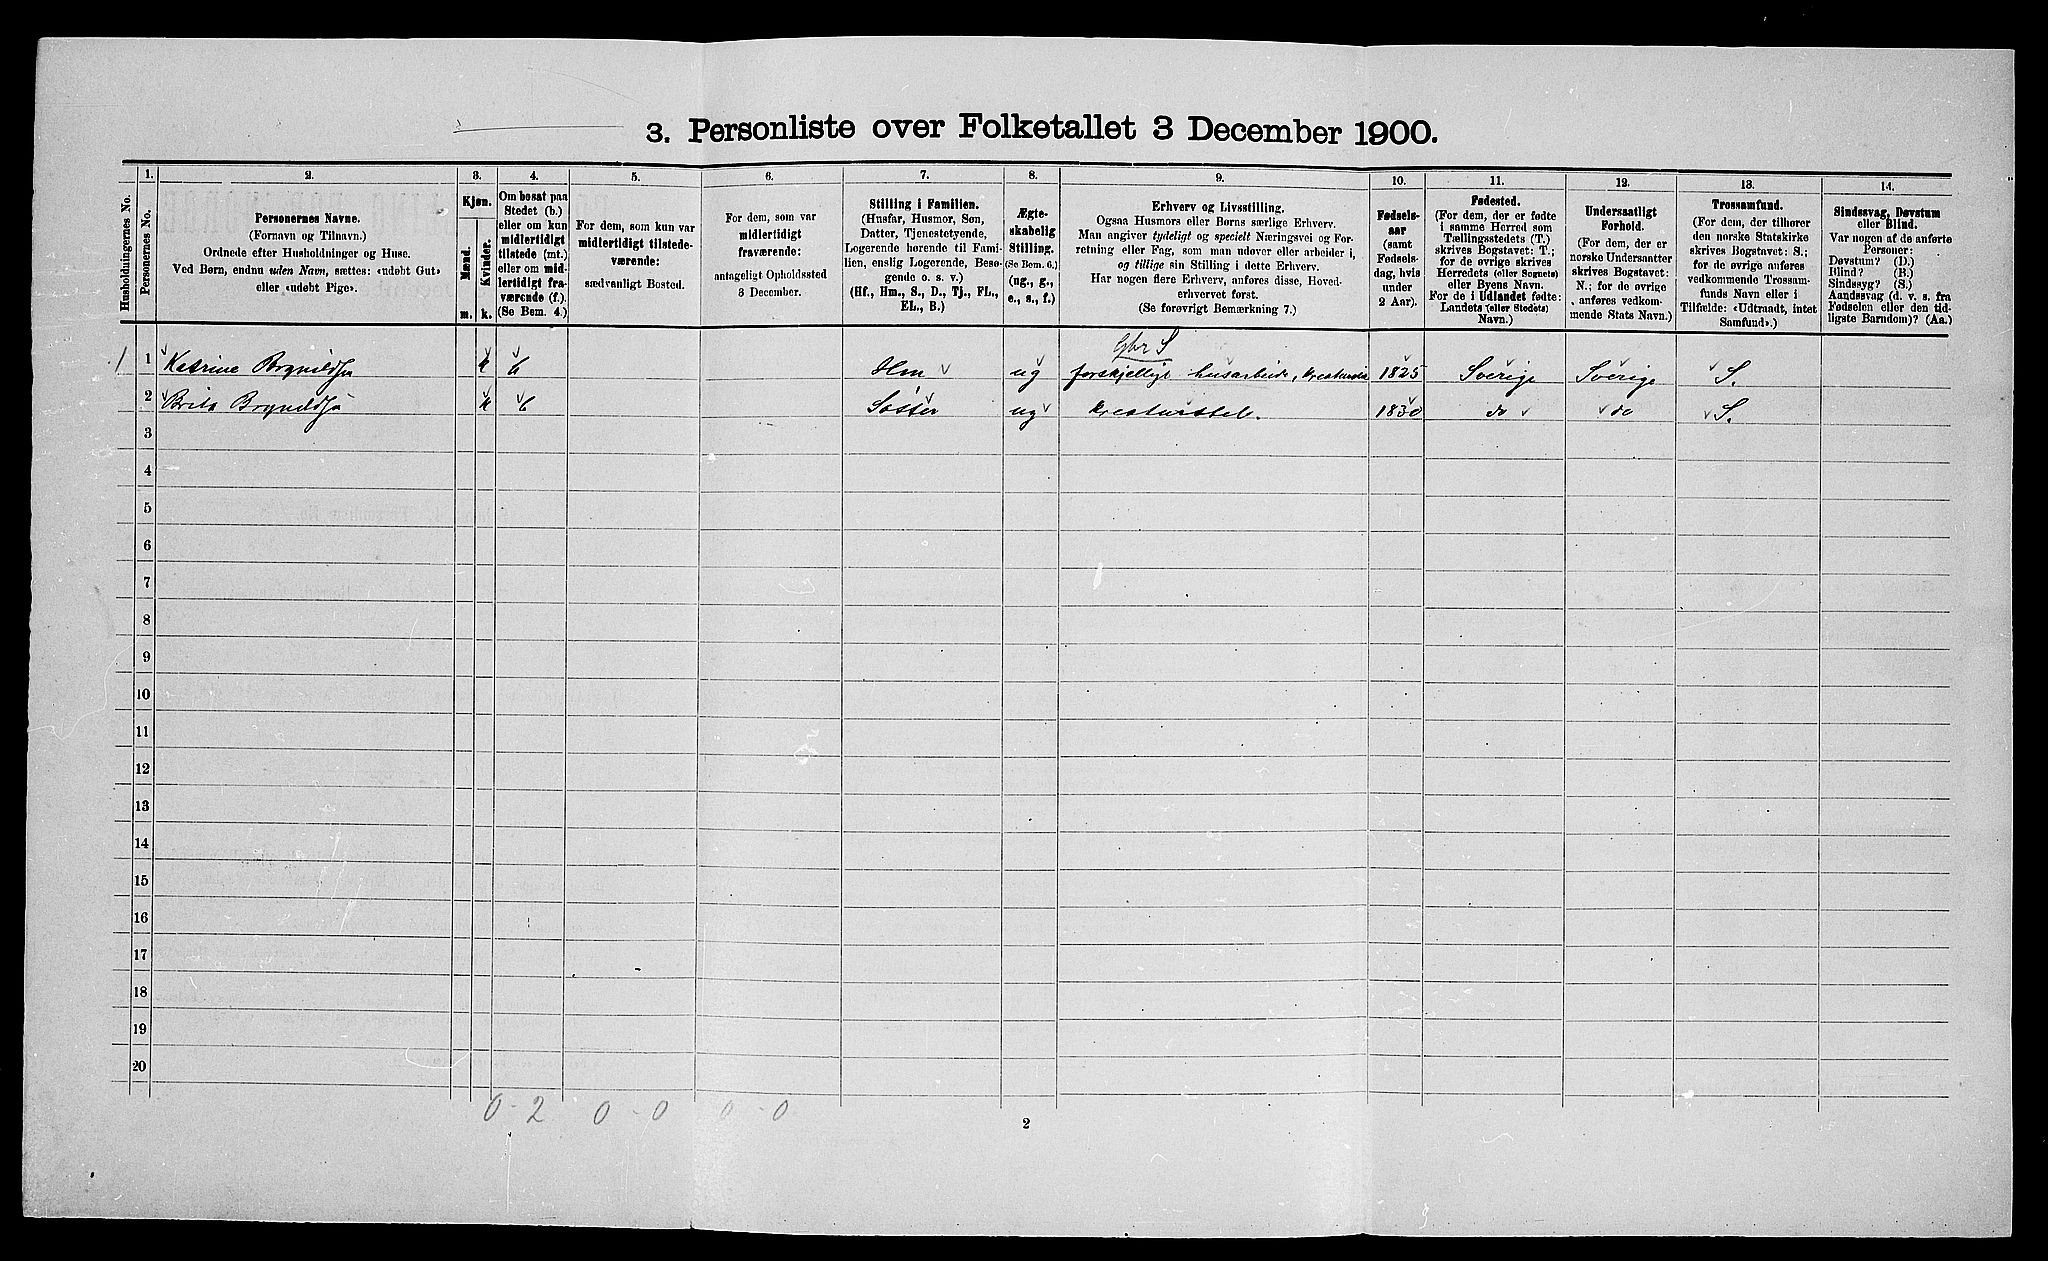 3. Personliste over Folketallet 3 December 1900.
1. 2. 3. 4. 5. 6. 7. 8. 9. 10. 11. 12. 13. 14.
Husholdningernes No.
Personernes No.
Personernes Navne.
(Fornavn og Tilnavn.)
Ordnede efter Husholdninger og Huse.
Ved Børn, endnu uden Navn, sættes: «udøbt Gut»
eller «udøbt Pige».
Kjøn.
Mænd.
Kvinder.
m. k.
Om bosat paa
Stedet (b.)
eller om kun
midlertidigt
tilstede (mt.)
eller om mid-
lertidigt fra-
værende (f.)
(Se Bem. 4.)
For dem, som kun var
midlertidigt tilstede-
værende:
sædvanligt Bosted.
For dem, som var
midlertidigt
fraværende:
antageligt Opholdssted
3 December.
Stilling i Familien.
(Husfar, Husmor, Søn,
Datter, Tjenestetyende,
Logerende hørende til Fami-
lien, enslig Logerende, Besø-
gende o. s. v.)
(Hf., Hm., S., D., Tj., FL.,
EL., B.)
Ægte-
skabelig
Stilling.
(Se Bem. 6.)
(ug., g.,
e., s., f.)
Erhverv og Livsstilling.
Ogsaa Husmors eller Børns særlige Erhverv.
Man angiver tydeligt og specielt Næringsvei og For-
retning eller Fag, som man udøver eller arbeider i,
og tillige sin Stilling i dette Erhverv.
Har nogen flere Erhverv, anføres disse, Hoved-
erhvervet først.
(Se forøvrigt Bemærkning 7.)
Fødsels-
aar
(samt
Fødsels-
dag, hvis
under
2 Aar).
Fødested.
(For dem, der er fødte
i samme Herred som
Tællingsstedets (T.)
skrives Bogstavet: T.;
for de øvrige skrives
Herredets (eller Sognets)
eller Byens Navn.
For de i Udlandet fødte:
Landets (eller Stedets)
Navn.)
Undersaatligt
Forhold.
(For dem, der er
norske Undersaatter
skrives Bogstavet:
N.; for de øvrige
anføres vedkom-
mende Stats Navn.)
Trossamfund.
(For dem, der tilhører
den norske Statskirke
skrives Bogstavet: S.;
for de øvrige anføres
vedkommende Trossam-
funds Navn eller i
Tilfælde: «Udtraadt, intet
Samfund».)
Sindssvag, Døvstum
eller Blind.
Var nogen af de anførte
Personer:
Døvstum? (D.)
Blind? (B.)
Sindssyg? (S.)
Aandssvag (d. v. s. fra
Fødselen eller den tid-
ligste Barndom)? (Aa.)
Gbr S
1 1 Katrine k b Hm ug forskjellige husarbeide, 1825 Sverige Sverige S.
2 Brita k b Søster ug kreaturstel. 1830 do do S.
3
4
5
6
7
8
9
10
11
12
13
14
15
16
17
18
19
20
0 - 2 0 - 0 0 - 0
2